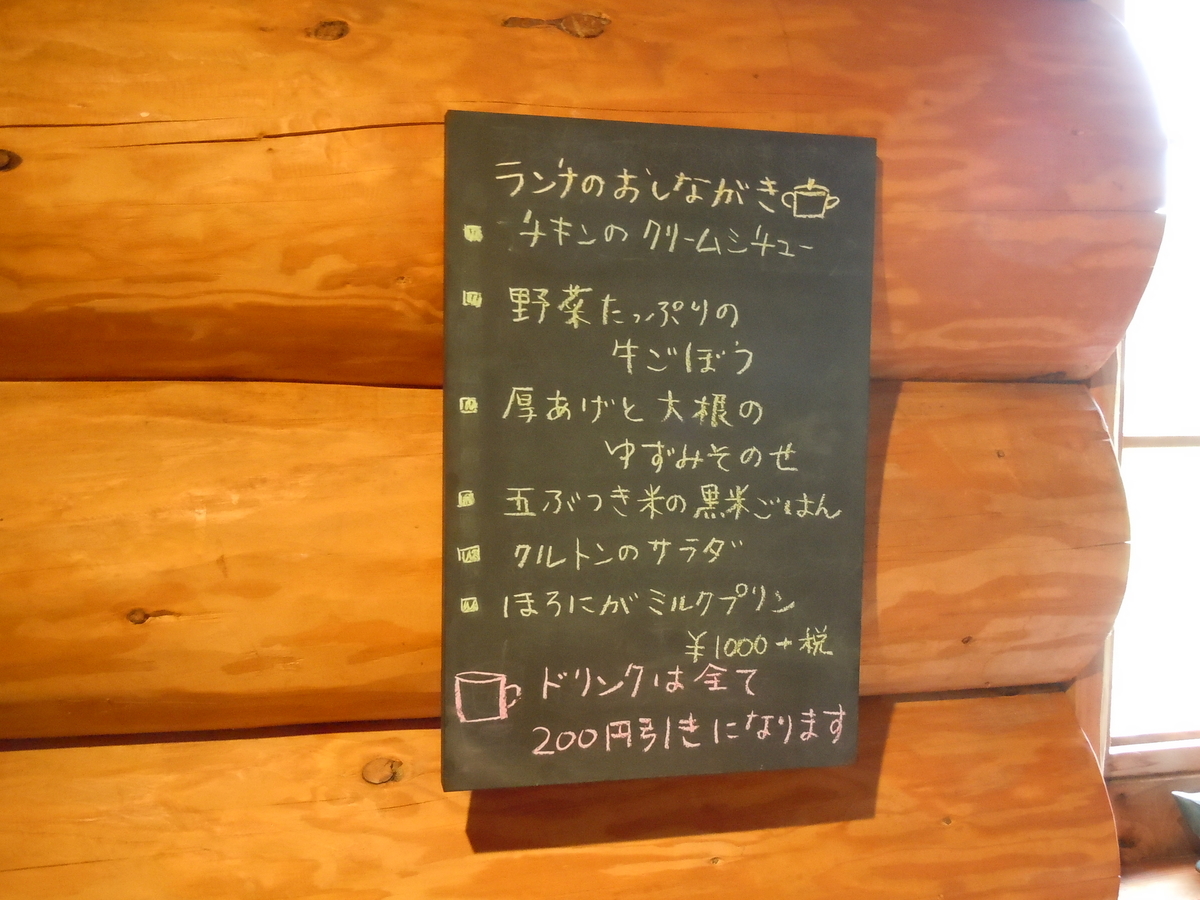 ランチのおしながき
チキンのクリームシチュー
野菜たっぷりの
牛ごぼう
厚あげと大根の
ゆずみそのせ
五ぶつき米の黒米ごはん
クルトンのサラダ
ほろにがミルクプリン
¥1000+税
ドリンクは全て
200円引きになります